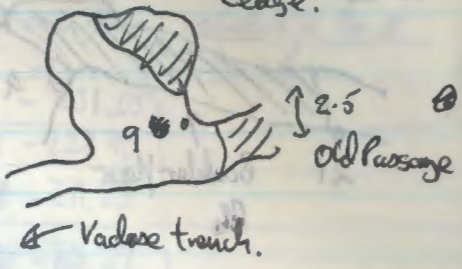 ledge.
2.5
9
Old Passage
Vadose trench.